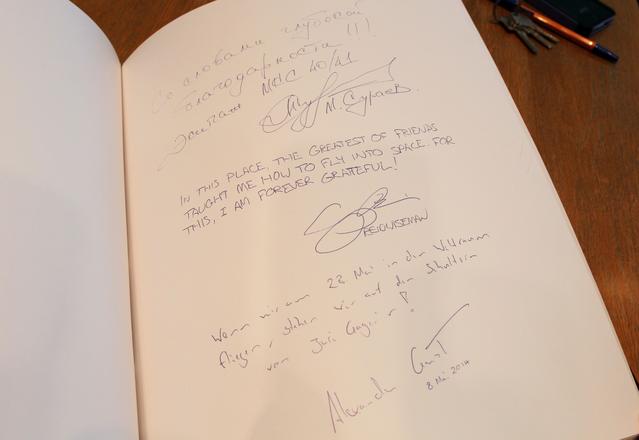 Со словами глубокой
благодарности!!!
Экипаж МКС 40/41
М. Сураев.
IN THIS PLACE, THE GREATEST OF FRIENDS
TAUGHT ME HOW TO FLY INTO SPACE. FOR
THIS, I AM FOREVER GRATEFUL!
REID WISEMAN
Wenn wir am 28. Mai in den Weltraum
fliegen, stehen wir auf den Schultern
von Juri Gagarin!
Alexander Gerst
8 Mai 2014